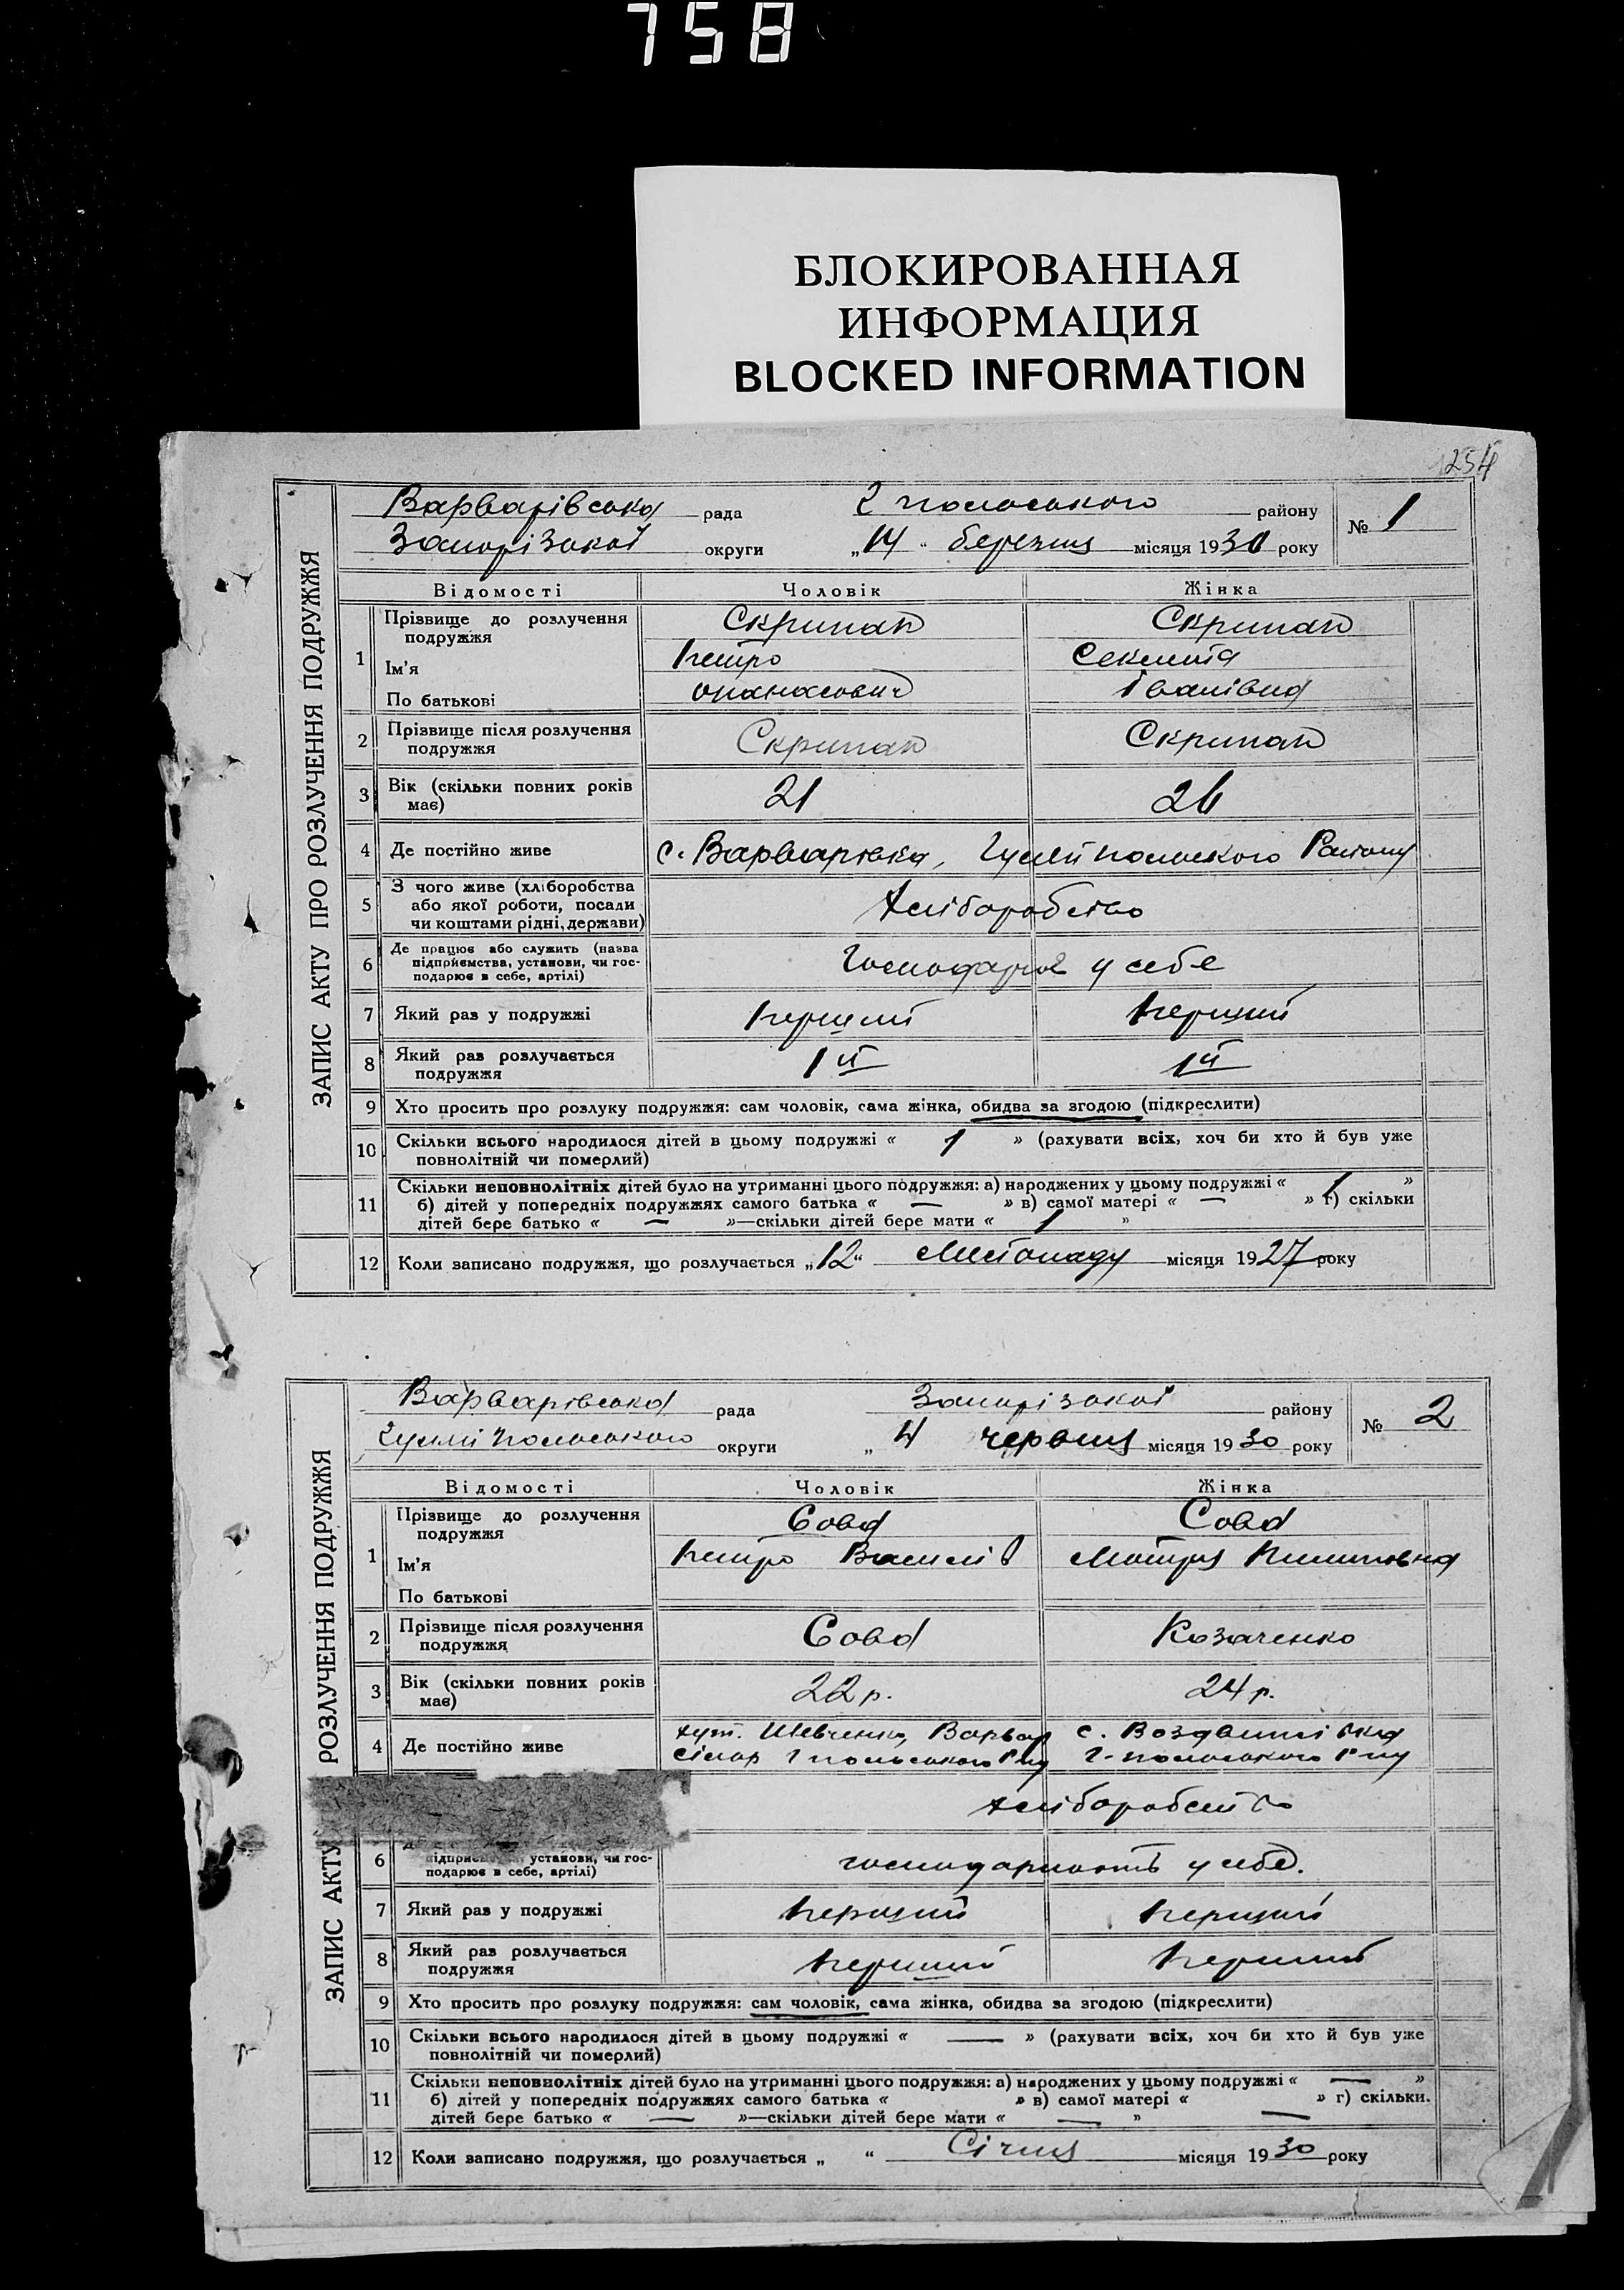 758
БЛОКИРОВАННАЯ
ИНФОРМАЦИЯ
BLOCKED INFORMATION
254
ЗАПИС АКТУ ПРО РОЗЛУЧЕННЯ ПОДРУЖЖЯ
Варварівська рада Г полоського району № 1
Запорізької округи „14“ березня місяця 1930 року
Відомості Чоловік Жінка
1 Прізвище до розлучення подружжя Скрипак Скрипак
Ім'я Петро Секлета
По батькові Опанасович Іванівна
2 Прізвище після розлучення подружжя Скрипак Скрипак
3 Вік (скільки повних років має) 21 26
4 Де постійно живе с. Варварівка, Гуляйпольского Району
5 З чого живе (хліборобства або якої роботи, посади чи коштами рідні, держави) Хліборобство
6 Де працює або служить (назва підприємства, установи, чи господарює в себе, артілі) Господарює у себе
7 Який раз у подружжі перший перший
8 Який раз розлучається подружжя 1й 1й
9 Хто просить про розлуку подружжя: сам чоловік, сама жінка, обидва за згодою (підкреслити)
10 Скільки всього народилося дітей в цьому подружжі « 1 » (рахувати всіх, хоч би хто й був уже
повнолітній чи померлий)
11 Скільки неповнолітніх дітей було на утриманні цього подружжя: а) народжених у цьому подружжі « 1 »
б) дітей у попередніх подружжях самого батька « — » в) самої матері « — » г) скільки
дітей бере батько « — »—скільки дітей бере мати « 1 »
12 Коли записано подружжя, що розлучається „12“ Листопаду місяця 1927 року
ЗАПИС АКТУ РОЗЛУЧЕННЯ ПОДРУЖЖЯ
Варварівська рада Запорізької району № 2
Гуляй Полоського округи „ 4 червня місяця 1930 року
Відомості Чоловік Жінка
1 Прізвище до розлучення подружжя Сова Сова
Ім'я Петро Василів Мотря Пилиповна
По батькові
2 Прізвище після розлучення подружжя Сова Козаченко
3 Вік (скільки повних років має) 22 р. 24 р.
4 Де постійно живе хут. Шевченка, Варвар с. Воздвижівка
Г польського Р-ну Г-полоського Р-ну
хліборобство
6 установи, чи господарює в себе, артілі) господарюють у себе.
7 Який раз у подружжі перший перший
8 Який раз розлучається подружжя перший перший
9 Хто просить про розлуку подружжя: сам чоловік, сама жінка, обидва за згодою (підкреслити)
10 Скільки всього народилося дітей в цьому подружжі « — » (рахувати всіх, хоч би хто й був уже
повнолітній чи померлий)
11 Скільки неповнолітніх дітей було на утриманні цього подружжя: а) народжених у цьому подружжі « — »
б) дітей у попередніх подружжях самого батька « » в) самої матері « — » г) скільки.
дітей бере батько « — »—скільки дітей бере мати « — »
12 Коли записано подружжя, що розлучається „ “ Січня місяця 1930 року